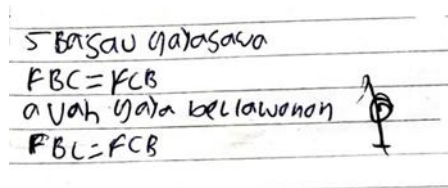 5 Besau gayasawa
FBC = FCB
arah gaya berlawanan
FBC = FCB